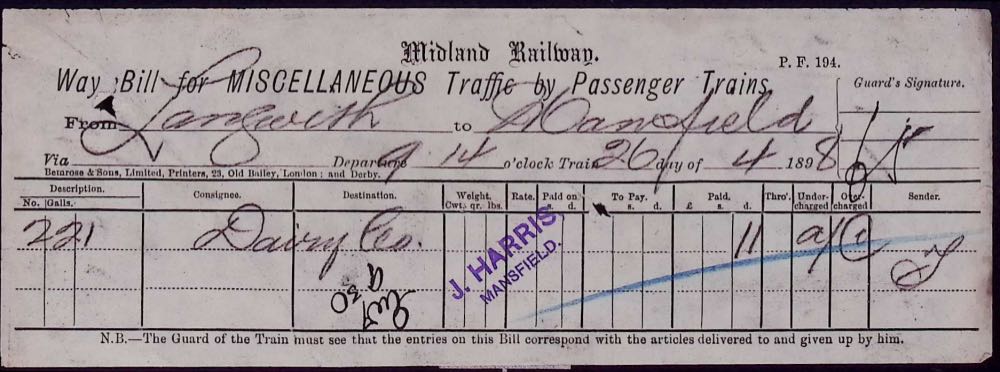 Midland Railway.
P. F. 194.
Way Bill for MISCELLANEOUS Traffic by Passenger Trains
Guard's Signature.
From Langwith to Mansfield
Via Departure 9 14 o'clock Train 26 day of 4 1898
Bemrose & Sons, Limited, Printers, 23, Old Bailey, London; and Derby.
Description. Consignee. Destination. Weight. Rate. Paid on To Pay. Paid. Thro'. Under- Over- Sender.
No. Galls. Cwt. qr. lbs. s. d. s. d. £ s. d. charged charged
221 Dairy Co. 11 a/c
J. HARRIS,
MANSFIELD.
9 30
N.B.—The Guard of the Train must see that the entries on this Bill correspond with the articles delivered to and given up by him.